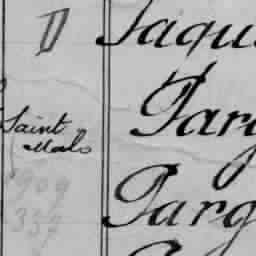 D
Saint
Malo
1909
337
Jaqu
Parg
Parg